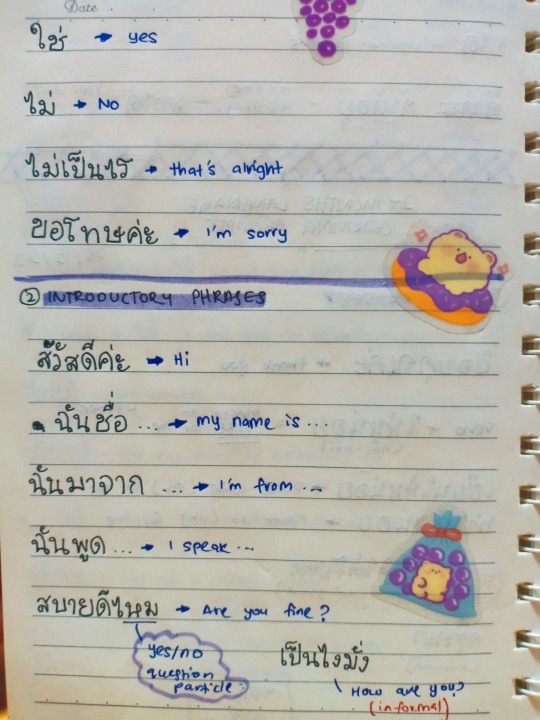 Date
ใช่ → yes
ไม่ → No
ไม่เป็นไร → that's alright
ขอโทษค่ะ → I'm sorry
② INTRODUCTORY PHRASES
สวัสดีค่ะ → Hi
• ฉันชื่อ ... → my name is ...
ฉันมาจาก ... → I'm from ...
ฉันพูด ... → I speak ...
สบายดีไหม → Are you fine?
yes/no
question
particle.
เป็นไงมั่ง
How are you?
(informal)